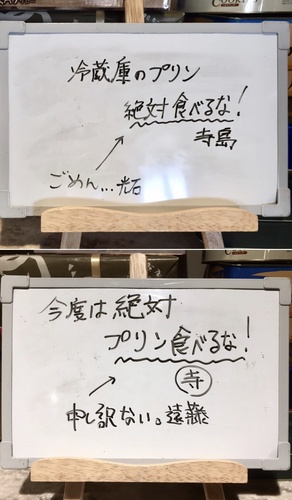 冷蔵庫のプリン
絶対食べるな!
寺島
ごめん...光石
今度は絶対
プリン食べるな!
寺
申し訳ない。遠藤